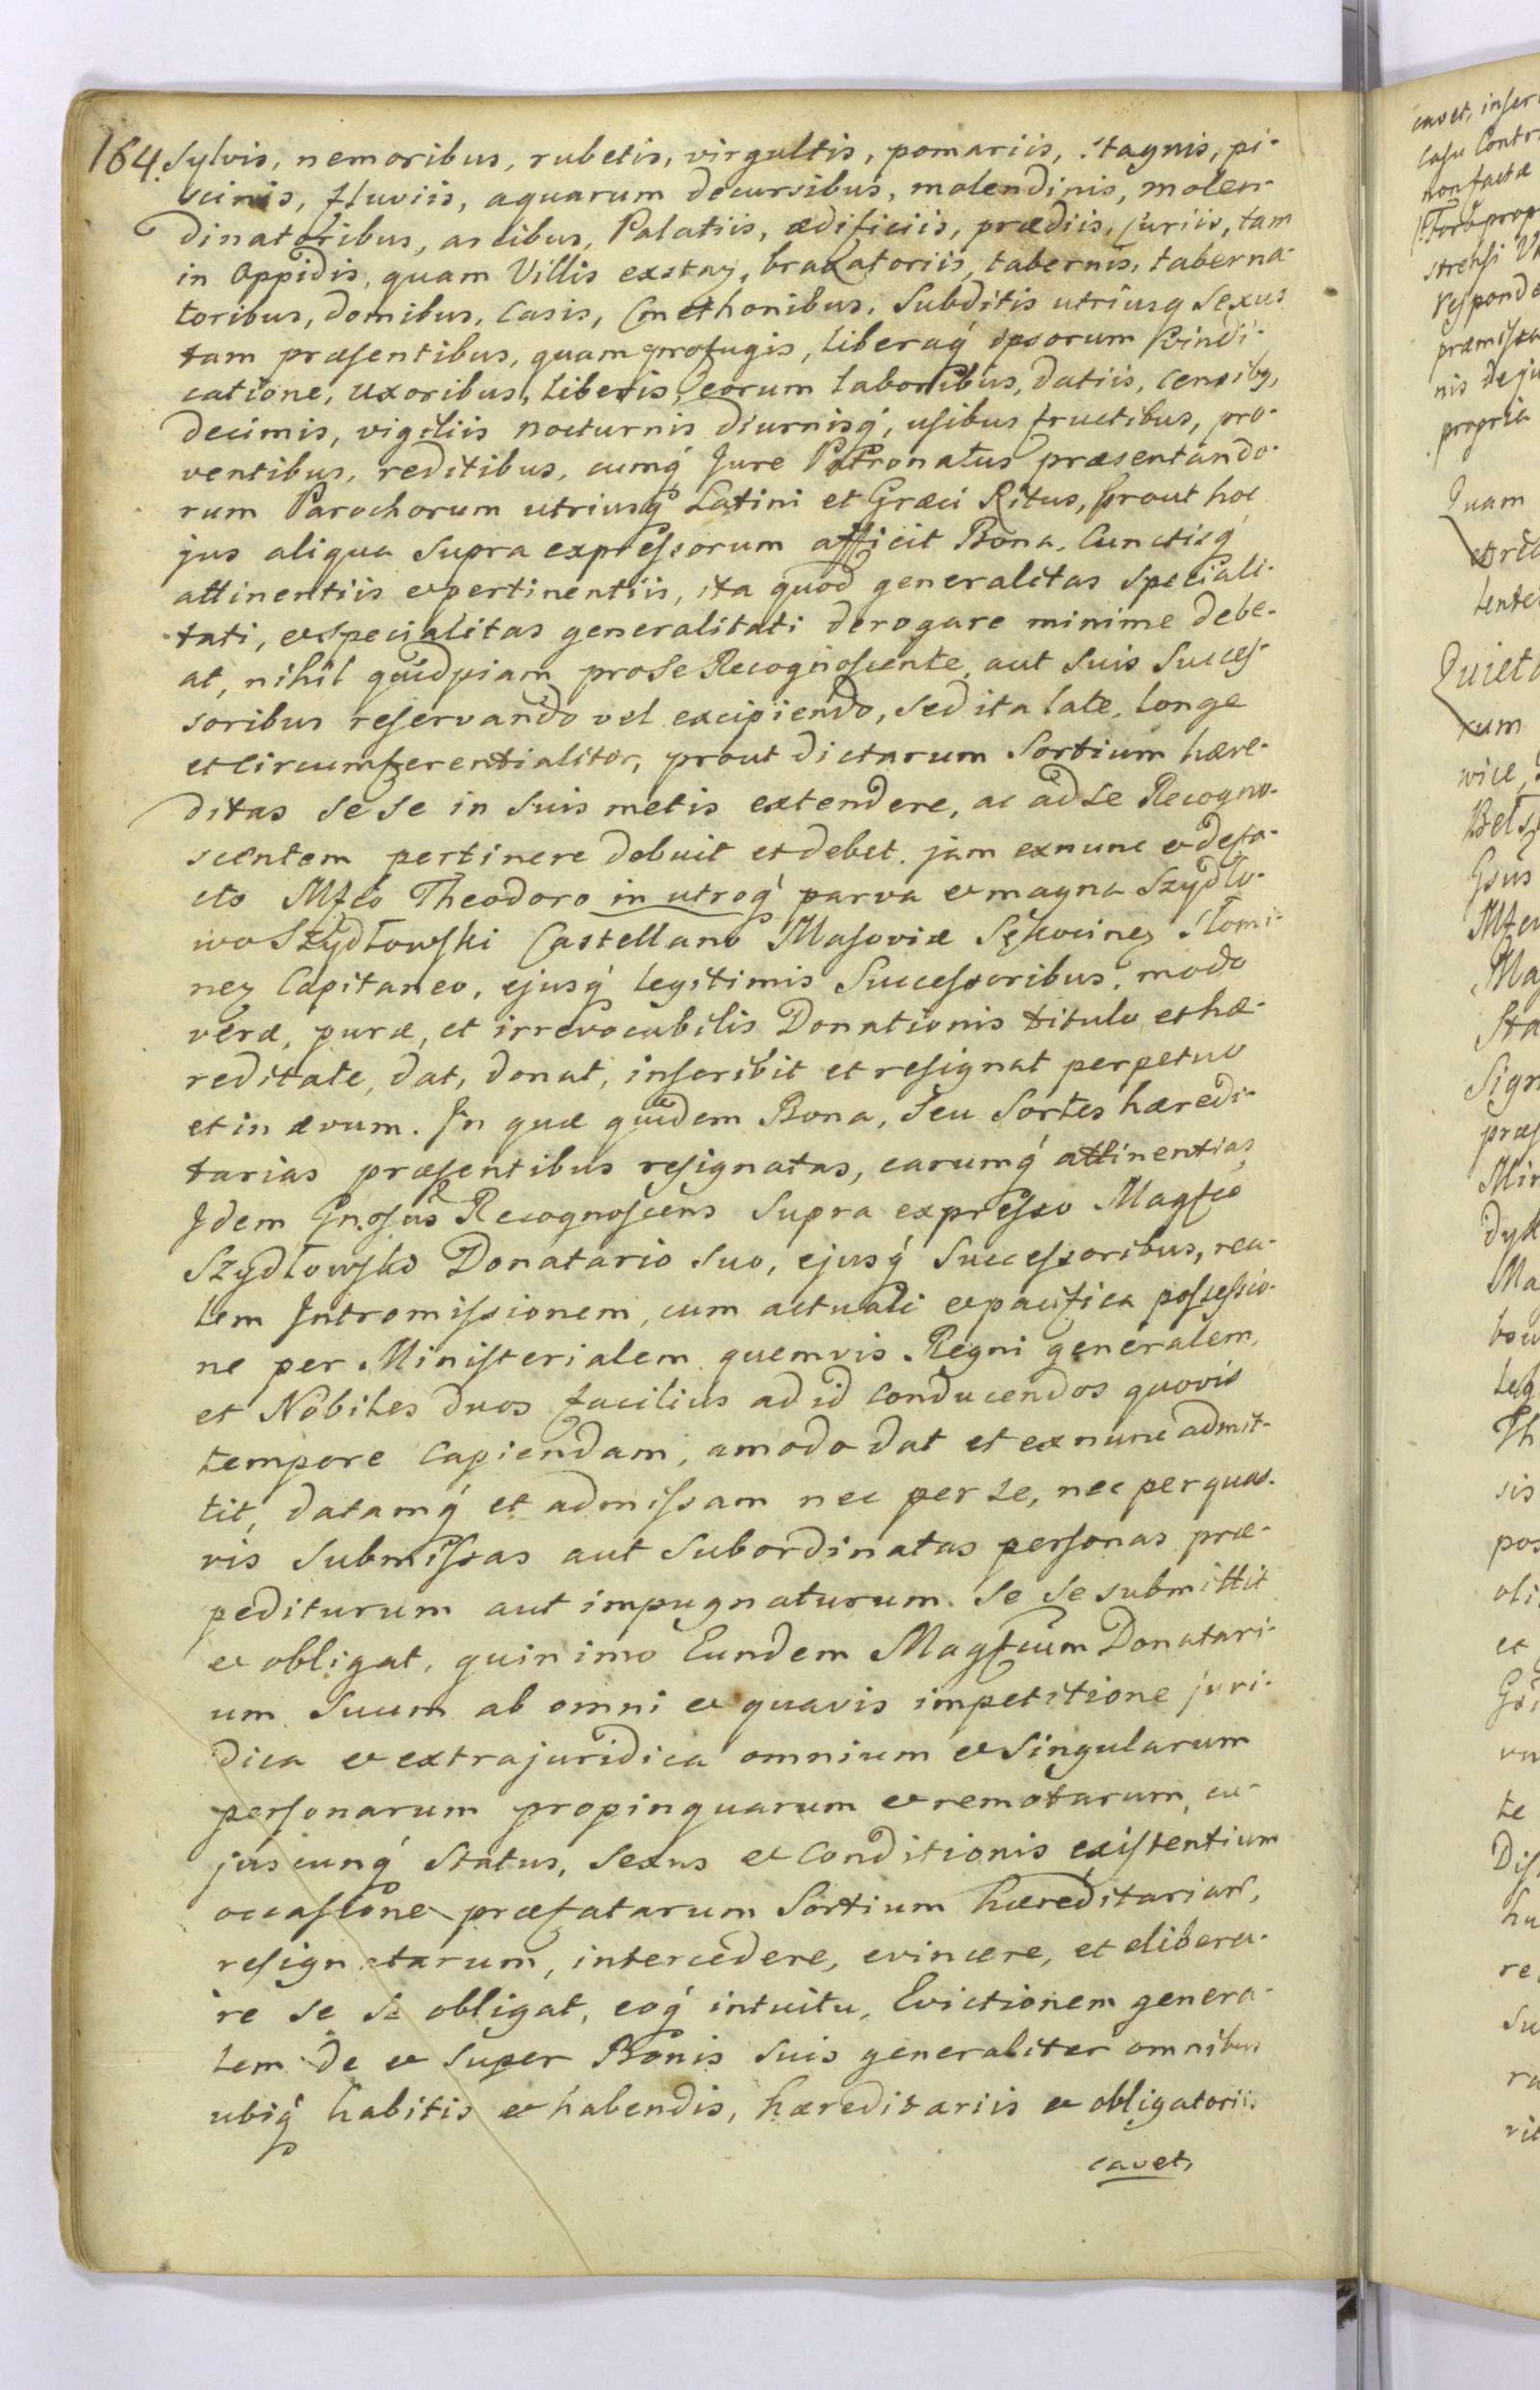 164. Sylvis, nemoribus, rubetis, virgultis, pomariis, stagnis, pi-
scinis, fluviis, aquarum decursibus, molendinis, molen-
dinatoribus, arcibus, Palatiis, ædificiis, prædiis, curiis, tam
in Oppidis, quam Villis exstan., braxatoriis, tabernis, taberna-
toribus, domibus, Casis, Cmethonibus, Subditis utriusq́ Sexus
tam præsentibus, quam profugis, liberaq́ ipsorum vindi-
catione, uxoribus, liberis, eorum laboribus, datiis, censibq,
decimis, vigiliis nocturnis diurnisq́, usibus fructibus, pro-
ventibus, reditibus, cumq́ Jure Patronatus præsentando-
rum Parochorum utriusq́ Latini et Græci Ritus, prout hoc
jus aliqua supra expressorum afficit Bona, Cunctisq́
attinentiis et pertinentiis, ita quod generalitas speciali-
tati, et specialitas generalitati derogare minime debe-
at, nihil quidpiam pro Se Recognoscente, aut Suis Succes-
soribus reservando vel excipiendo, Sed ita late, longe
et circumferentialiter, prout dictarum Sortium hære-
ditas Se se in Suis metis extendere, ac ad Se Recogno-
scentem pertinere debuit et debet, jam exnunc et defa-
cto Mfco Theodoro in utroq́ parva et magna Szydło-
wo Szydłowski Castellano Masoviæ Słomi-
nez Capitaneo, ejusq́ legitimis Successoribus, modo
veræ, puræ, et irrevocabilis Donationis titulo et hæ-
reditate, dat, donat, inscribit et resignat perpetuo
et in ævum. In quæ quidem Bona, Seu Sortes hæredi-
tarias præsentibus resignatas, earumq́ attinentias
Idem Gnosus Recognoscens Supra expresso Magfco
Szydłowsko Donatario Suo, ejusq́ Successoribus, rea-
lem Intromissionem, cum actuali et pacifica possessio-
ne per Ministerialem quemvis Regni generalem,
et Nobiles duos facilius ad id conducendos quovis
tempore Capiendam, amodo dat et exnunc admit-
tit, datamq́ et admissam nec per Se, nec per quas-
vis Submissas aut Subordinatas personas præ-
pediturum aut impugnaturum. Se se submittit
et obligat, quinimo Eundem Magfcum Donatari-
um Suum ab omni et quavis impetitione juri-
dica et extrajuridica omnium et Singularum
personarum propinquarum et remotarum, cu-
juscunq́ Status, Sexus et Conditionis existentium
occasione præfatarum Sortium hæreditariar.,
resignatarum, intercedere, evincere, et elibera-
re se Se obligat, eoq́ intuitu, Evictionem genera-
lem de et Super Bonis Suis generaliter omnibus
ubiq́ habitis et habendis, hæreditariis et obligatoriis
cavet,
cavet, inser
Casu Contr
non factæ
Foro prop
strensi
responde
præmissa
nis de ju
propria
Quam
lente
Quiet
rum
wice,
Bels
Gsus
Ma
Sta
Sign
præs
Min
Ma
leg
Th
sis
pos
obi
et
te
Dis
hu
re
Su
ra
rit